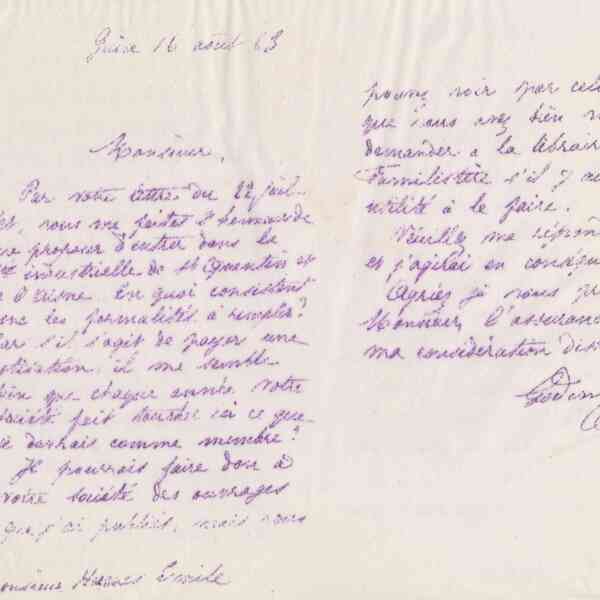 Guise 16 août 83
Monsieur,
Par votre lettre du 22 juil-
vous me faites demande
proposer d'entrer dans la
industrielle de St Quentin et
l'Aisne. En quoi consistent
donc les formalités à remplir?
Car s'il s'agit de payer une
cotisation, il me semble
bien que chaque année votre
Société fait toucher ici ce que
je devrais comme membre?
Je pourrais faire don à
votre Société des ouvrages
que j'ai publiés, mais vous
Monsieur Emile
pouvez voir par
que vous avez bien
demander à la librai
Familistère s'il y au
utilité à le faire.
Veuillez me répon
et j'agirai en consé
Agréez je vous pr
Monsieur, l'assuran
ma considération dis
Godin